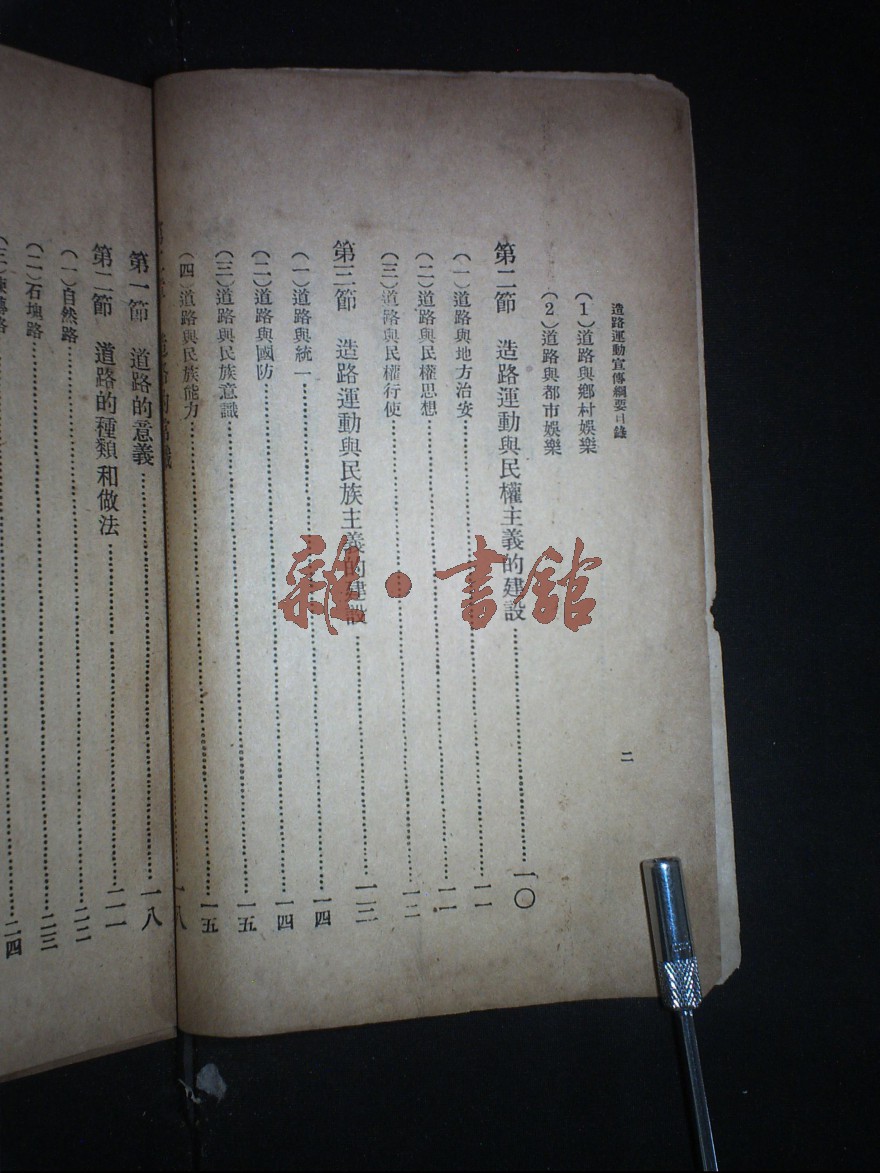 造路運動宣傳綱要目錄
二
(1)道路與鄉村娛樂
(2)道路與都市娛樂
第二節 造路運動與民權主義的建設……一〇
(一)道路與地方治安……一一
(二)道路與民權思想……一一
(三)道路與民權行使……一二
第三節 造路運動與民族主義的建設……一三
(一)道路與統一……一四
(二)道路與國防……一四
(三)道路與民族意識……一五
(四)道路與民族能力……一五
一八
第一節 道路的意義……一八
第二節 道路的種類和做法……二一
(一)自然路……二二
(二)石塊路……二三
二四
雜·書館